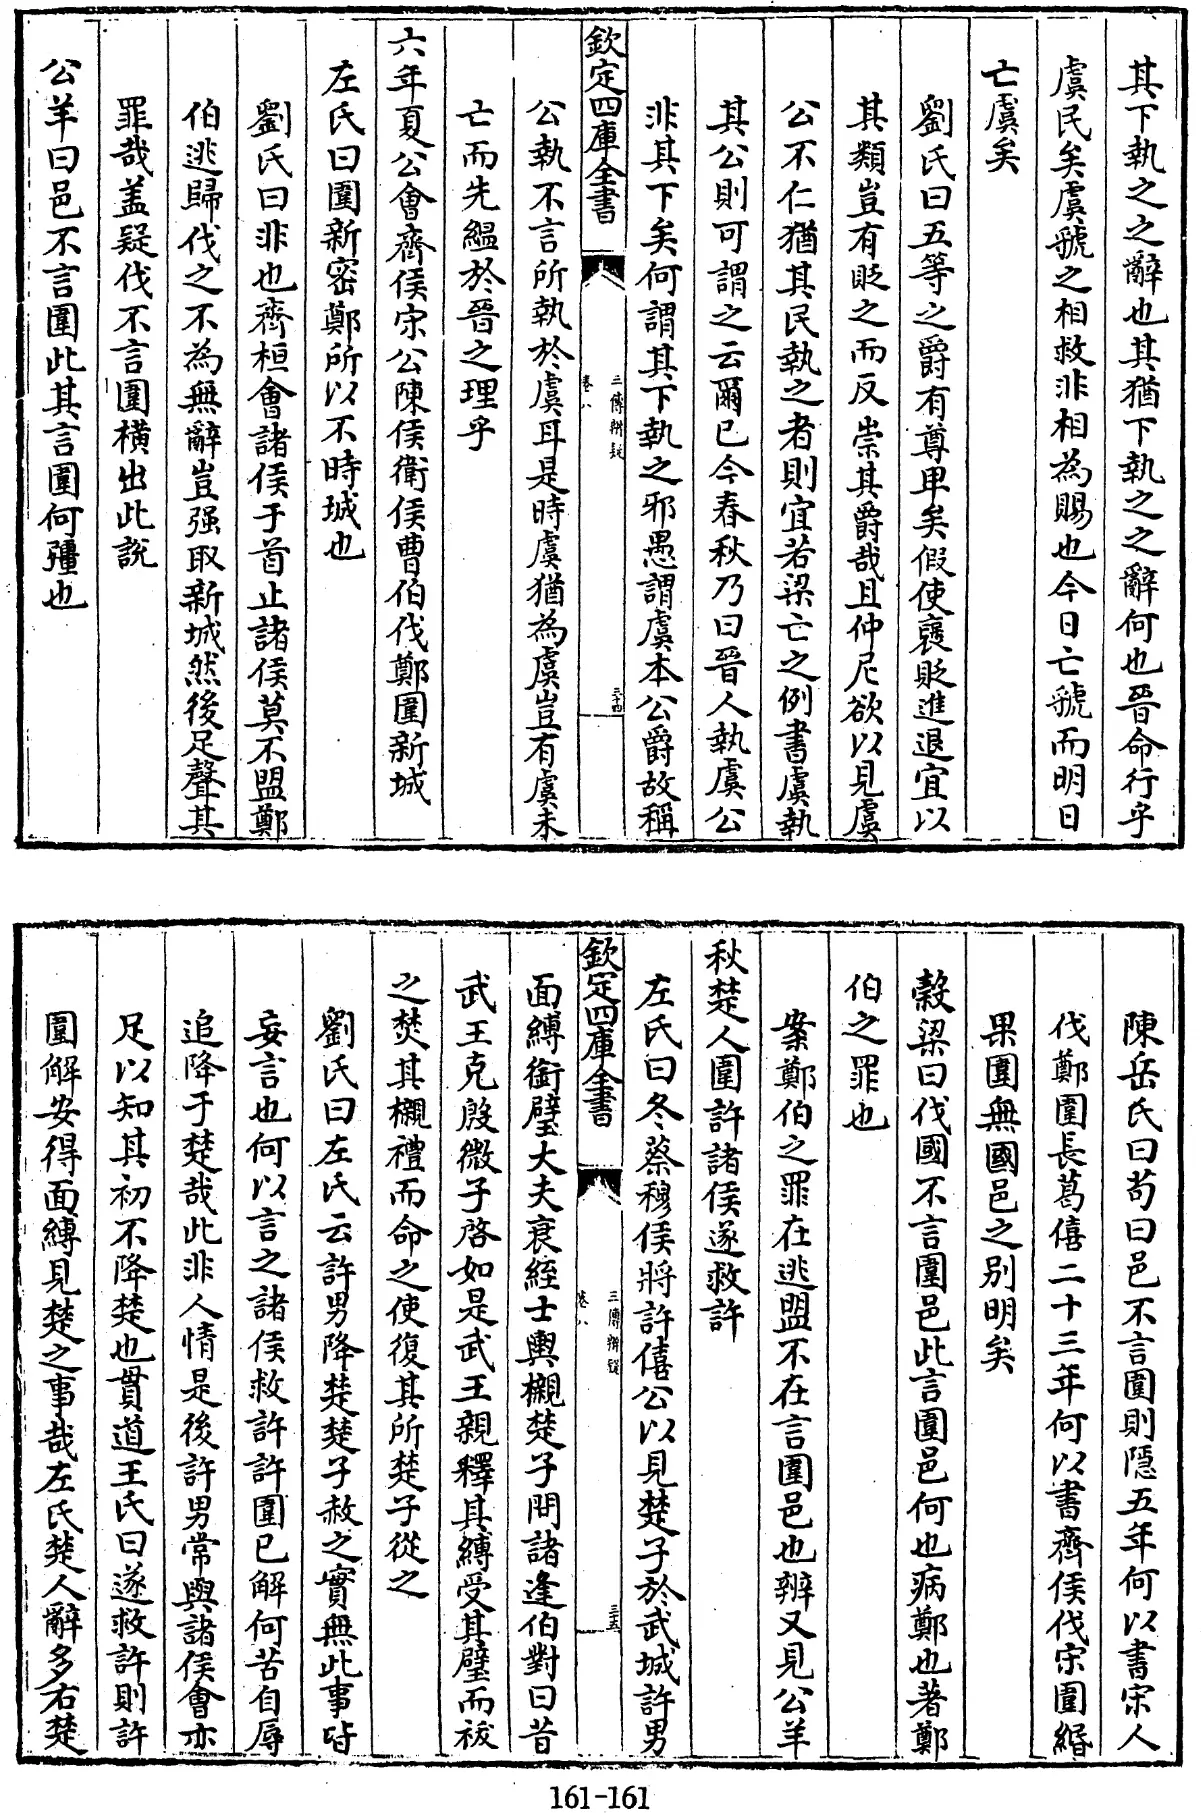 其下執之之辭也其猶下執之之辭何也晉命行乎
虞民矣虞虢之相救非相為賜也今日亡虢而明日
亡虞矣
劉氏曰五等之爵有尊卑矣假使褒貶進退宜以
其類豈有貶之而反崇其爵哉且仲尼欲以見虞
公不仁猶其民執之者則宜若梁亡之例書虞執
其公則可謂之云爾已今春秋乃曰晉人執虞公
非其下矣何謂其下執之邪愚謂虞本公爵故稱
欽定四庫全書
三傳辨疑
卷八
三十四
公執不言所執於虞耳是時虞猶為虞豈有虞未
亡而先緼於晉之理乎
六年夏公會齊侯宋公陳侯衛侯曹伯伐鄭圍新城
左氏曰圍新密鄭所以不時城也
劉氏曰非也齊桓會諸侯于首止諸侯莫不盟鄭
伯逃歸伐之不為無辭豈强取新城然後足聲其
罪哉盖疑伐不言圍橫出此說
公羊曰邑不言圍此其言圍何彊也
陳岳氏曰茍曰邑不言圍則隱五年何以書宋人
伐鄭圍長葛僖二十三年何以書齊侯伐宋圍緡
果圍無國邑之別明矣
榖梁曰伐國不言圍邑此言圍邑何也病鄭也著鄭
伯之罪也
案鄭伯之罪在逃盟不在言圍邑也辨又見公羊
秋楚人圍許諸侯遂救許
左氏曰冬蔡穆侯將許僖公以見楚子於武城許男
欽定四庫全書
三傳辨疑
卷八
三十五
面縛銜璧大夫衰絰士輿櫬楚子問諸逢伯對曰昔
武王克殷微子啓如是武王親釋其縛受其璧而祓
之焚其櫬禮而命之使復其所楚子從之
劉氏曰左氏云許男降楚楚子赦之實無此事皆
妄言也何以言之諸侯救許許圍已解何苦自辱
追降于楚哉此非人情是後許男常與諸侯會亦
足以知其初不降楚也貫道王氏曰遂救許則許
圍解安得面縛見楚之事哉左氏楚人辭多右楚
161-161